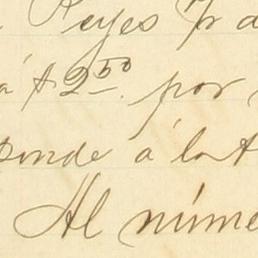 Reyes
á $2.50 por
ponde á la
Al núme